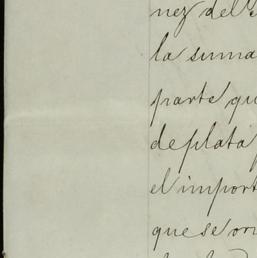 nez del
la suma
parte qu
de plata
el import
que se or